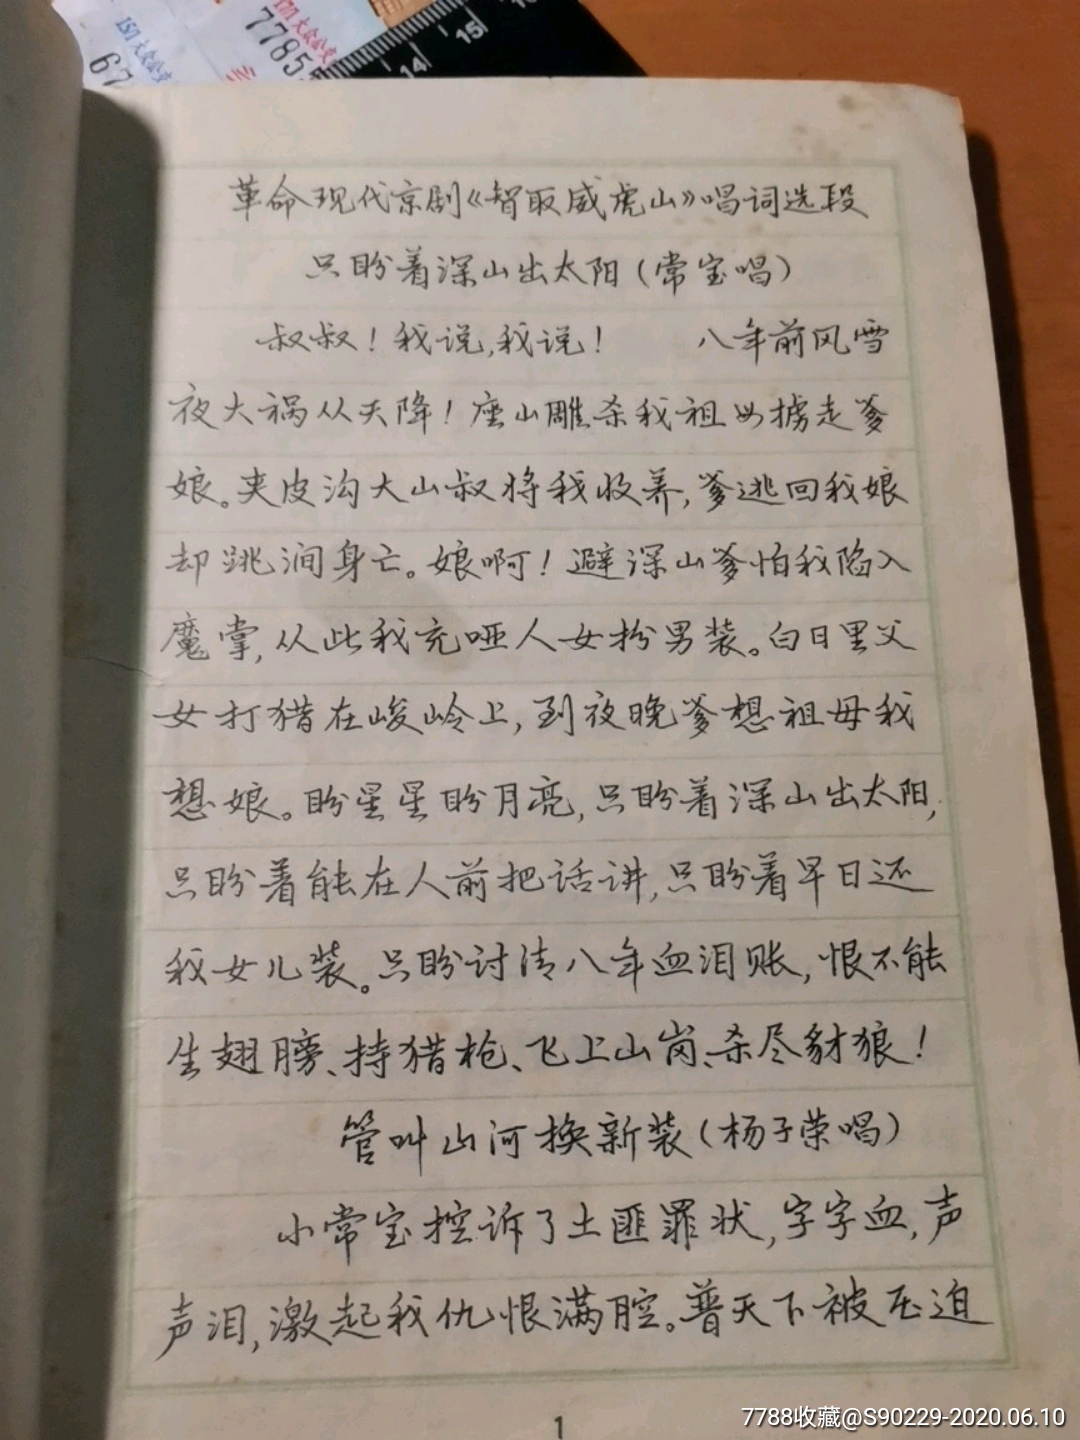 151大众公交
62
171大众公交
7785
14
15
革命现代京剧《智取威虎山》唱词选段
只盼着深山出太阳(常宝唱)
叔叔!我说,我说! 八年前风雪
夜大祸从天降!座山雕杀我祖母掳走爹
娘。夹皮沟大山叔将我收养,爹逃回我娘
却跳涧身亡。娘啊!避深山爹怕我陷入
魔掌,从此我充哑人女扮男装。白日里父
女打猎在峻岭上,到夜晚爹想祖母我
想娘。盼星星盼月亮,只盼着深山出太阳,
只盼着能在人前把话讲,只盼着早日还
我女儿装。只盼讨清八年血泪账,恨不能
生翅膀、持猎枪、飞上山岗、杀尽豺狼!
管叫山河换新装(杨子荣唱)
小常宝控诉了土匪罪状,字字血,声
声泪,激起我仇恨满腔。普天下被压迫
1
7788收藏@S90229-2020.06.10